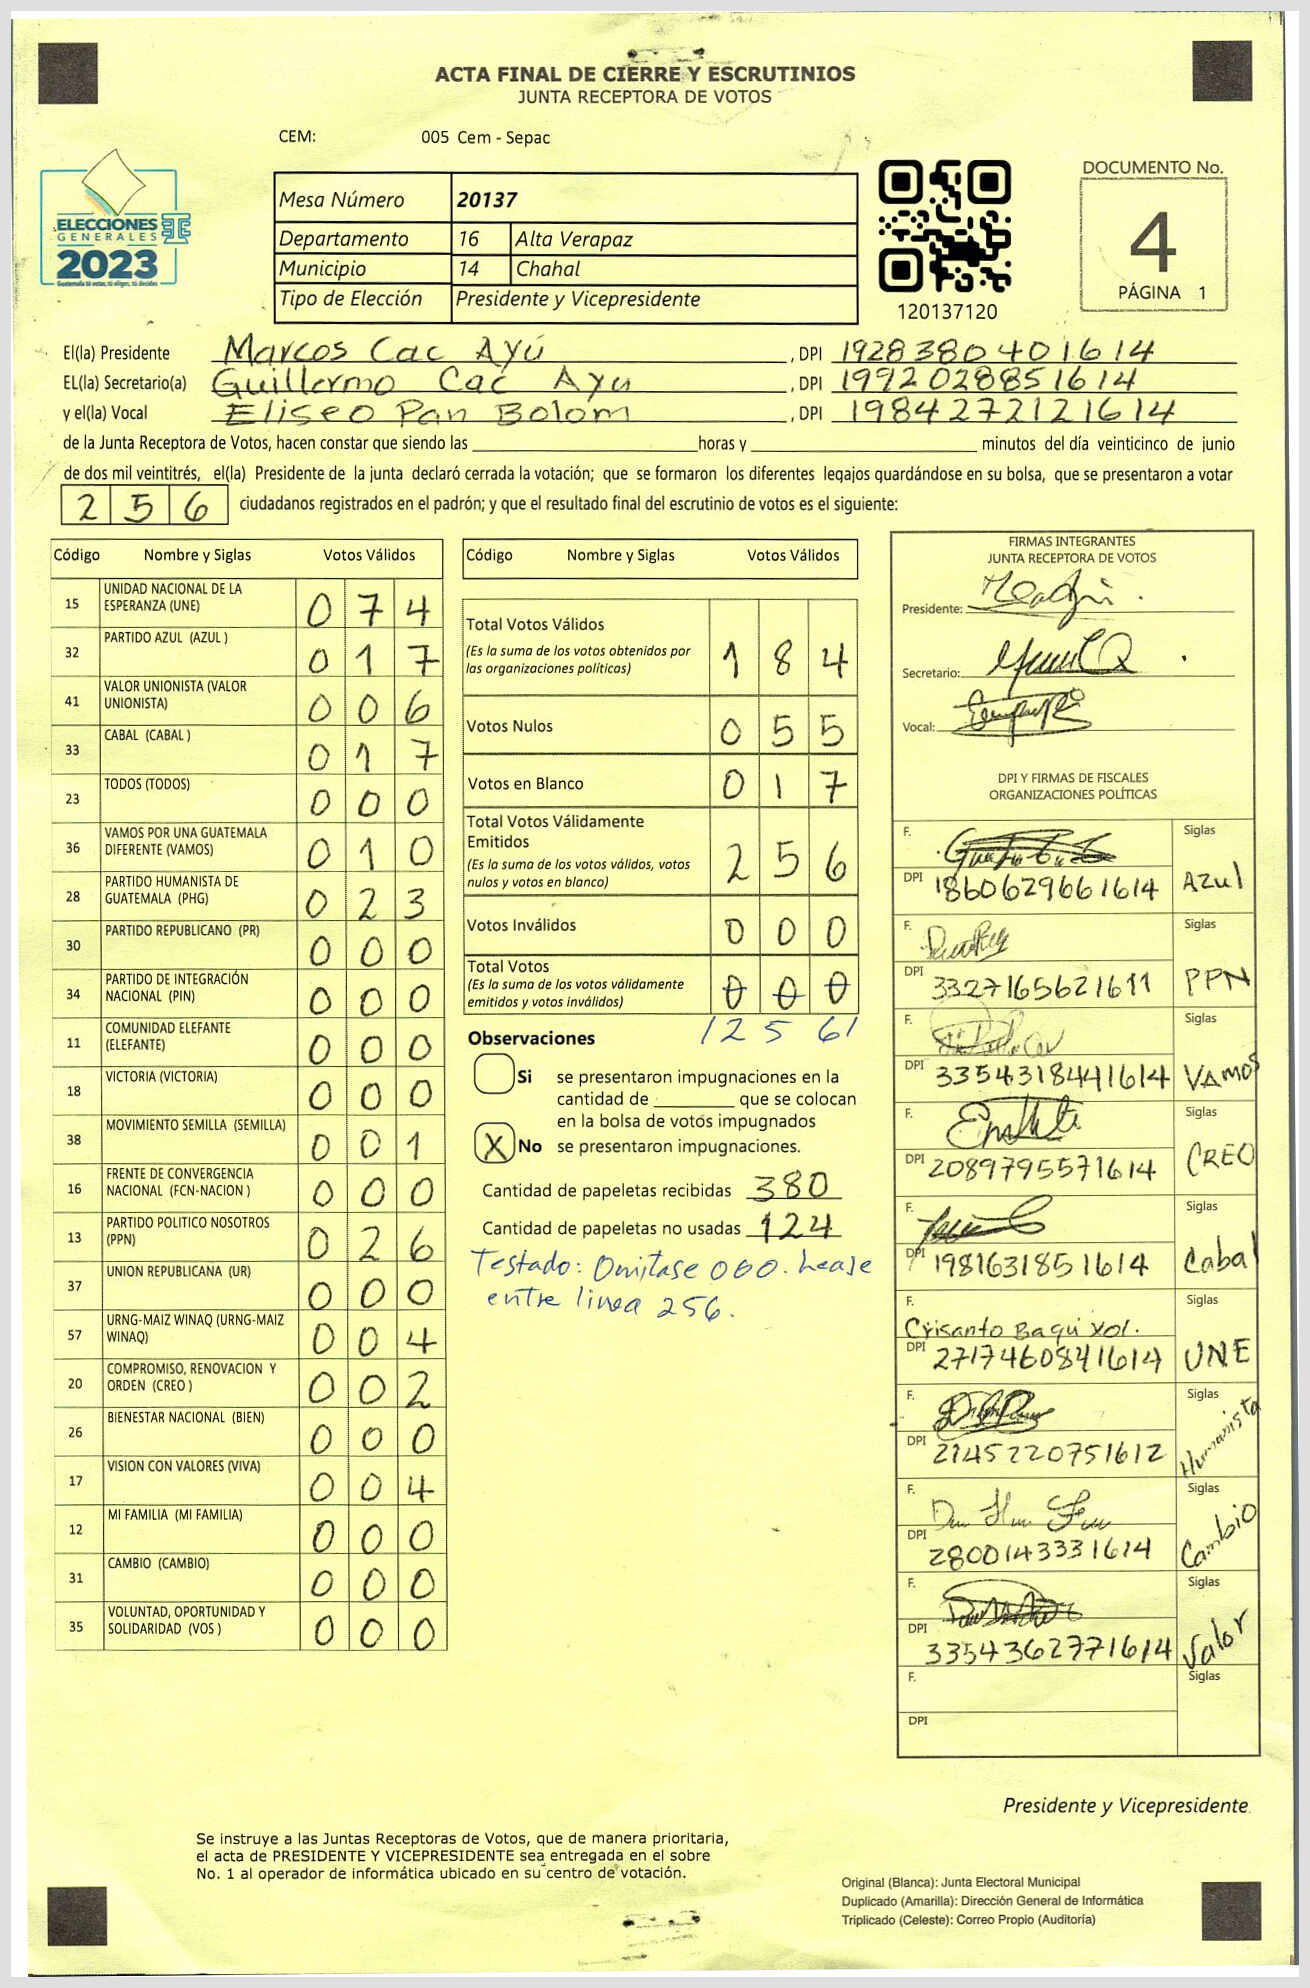 ACTA FINAL DE CIERRE Y ESCRUTINIOS
JUNTA RECEPTORA DE VOTOS
CEM: 005 Cem - Sepac
ELECCIONES
GENERALES
2023
Guatemala tú votas, tú eliges, tú decides
Mesa Número 20137
Departamento 16 Alta Verapaz
Municipio 14 Chahal
Tipo de Elección Presidente y Vicepresidente
120137120
DOCUMENTO No.
4
PÁGINA 1
El(la) Presidente Marcos Cac Ayú, DPI 1928380401614
EL(la) Secretario(a) Guillermo Cac Ayu, DPI 1992028851614
y el(la) Vocal Eliseo Pan Bolom, DPI 1984272121614
de la Junta Receptora de Votos, hacen constar que siendo las ____ horas y ____ minutos del día veinticinco de junio
de dos mil veintitrés, el(la) Presidente de la junta declaró cerrada la votación; que se formaron los diferentes legajos guardándose en su bolsa, que se presentaron a votar
256 ciudadanos registrados en el padrón; y que el resultado final del escrutinio de votos es el siguiente:
Código Nombre y Siglas Votos Válidos
15 UNIDAD NACIONAL DE LA ESPERANZA (UNE) 074
32 PARTIDO AZUL (AZUL ) 017
41 VALOR UNIONISTA (VALOR UNIONISTA) 006
33 CABAL (CABAL ) 017
23 TODOS (TODOS) 000
36 VAMOS POR UNA GUATEMALA DIFERENTE (VAMOS) 010
28 PARTIDO HUMANISTA DE GUATEMALA (PHG) 023
30 PARTIDO REPUBLICANO (PR) 000
34 PARTIDO DE INTEGRACIÓN NACIONAL (PIN) 000
11 COMUNIDAD ELEFANTE (ELEFANTE) 000
18 VICTORIA (VICTORIA) 000
38 MOVIMIENTO SEMILLA (SEMILLA) 001
16 FRENTE DE CONVERGENCIA NACIONAL (FCN-NACION ) 000
13 PARTIDO POLITICO NOSOTROS (PPN) 026
37 UNION REPUBLICANA (UR) 000
57 URNG-MAIZ WINAQ (URNG-MAIZ WINAQ) 004
20 COMPROMISO, RENOVACION Y ORDEN (CREO ) 002
26 BIENESTAR NACIONAL (BIEN) 000
17 VISION CON VALORES (VIVA) 004
12 MI FAMILIA (MI FAMILIA) 000
31 CAMBIO (CAMBIO) 000
35 VOLUNTAD, OPORTUNIDAD Y SOLIDARIDAD (VOS ) 000
Código Nombre y Siglas Votos Válidos
Total Votos Válidos 184
(Es la suma de los votos obtenidos por
las organizaciones políticas)
Votos Nulos 055
Votos en Blanco 017
Total Votos Válidamente
Emitidos 256
(Es la suma de los votos válidos, votos
nulos y votos en blanco)
Votos Inválidos 000
Total Votos 000
(Es la suma de los votos válidamente
emitidos y votos inválidos)
/256/
Observaciones
Si se presentaron impugnaciones en la
cantidad de ____ que se colocan
en la bolsa de votos impugnados
X No se presentaron impugnaciones.
Cantidad de papeletas recibidas 380
Cantidad de papeletas no usadas 124
Testado: Omitase 000. Lease
entre linea 256.
FIRMAS INTEGRANTES
JUNTA RECEPTORA DE VOTOS
Presidente:
Secretario:
Vocal:
DPI Y FIRMAS DE FISCALES
ORGANIZACIONES POLÍTICAS
F. Siglas
DPI 1860629661614 Azul
F. Siglas
DPI 3327165621611 PPN
F. Siglas
DPI 3354318441614 VAMOS
F. Siglas
DPI 2089795571614 CREO
F. Siglas
DPI 1981631851614 Cabal
F. Siglas
Crisanto Baqui Xol.
DPI 2717460841614 UNE
F. Siglas
DPI 2745220751612 Humanista
F. Siglas
DPI 2800143331614 Cambio
F. Siglas
DPI 3354362771614 Valor
F. Siglas
DPI
Presidente y Vicepresidente
Se instruye a las Juntas Receptoras de Votos, que de manera prioritaria,
el acta de PRESIDENTE Y VICEPRESIDENTE sea entregada en el sobre
No. 1 al operador de informática ubicado en su centro de votación.
Original (Blanca): Junta Electoral Municipal
Duplicado (Amarilla): Dirección General de Informática
Triplicado (Celeste): Correo Propio (Auditoría)